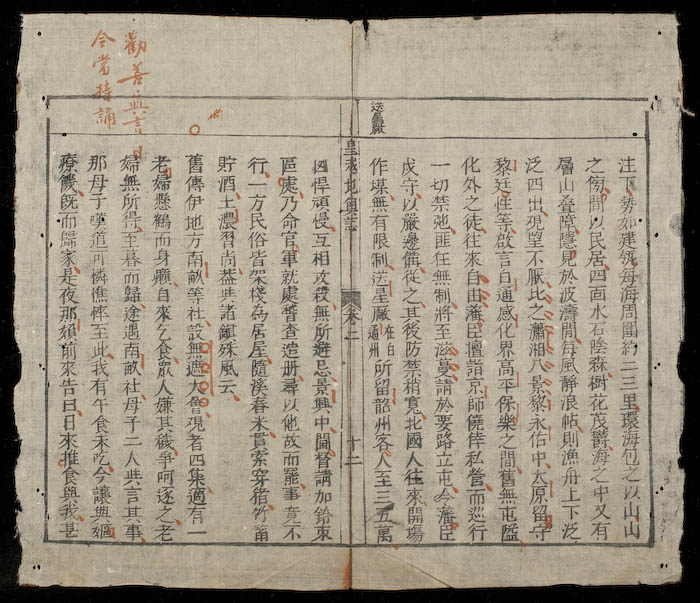 送星廠
注下勢如建瓴每海周圍約二三里環海包之以山山
之傍間以民居四面水石陰森樹花茂鬱海之中又有
層山叠障隱見於波濤間每風靜浪帖則漁舟上下泛
泛四出現望不厭比之瀟湘八景黎永佑中太原留守
黎廷性等啟言白通感化界高平保樂之間舊無屯隘
化外之徒往來自由藩臣壇詣京師僥倖私營而巡行
一切禁弛匪任無制將至滋蔓請於要路立屯令藩臣
戍守以嚴邊備從之其後防禁稍寬北國人往來開場
作煤無有限制送星廠在白通州所留韶州客人至三五萬
皇越地輿誌 卷二 十二
凶悍頑慢互相攻殺無所避忌景興中開督請加鈐束
區處乃命官軍就處督查造册尋以他故而罷事竟不
行一方民俗皆架棧為居屋隨溪舂米貫索穿猪竹甬
貯酒土濃習尚益與諸鎮殊風云
舊傳伊地方南畝等社設無遮大會視者四集適有一
老婦懸鶉而身癩自來乞食眾人嫌其穢爭呵逐之老
婦無所得至暮而歸途遇南畝社母子二人與言其事
那母子嘆道可憐憔悴至此我有午食未吃今讓與嫗
療饑既而歸家是夜那嫗前來告曰日來推食與我甚
勸善真言曰
今當持誦